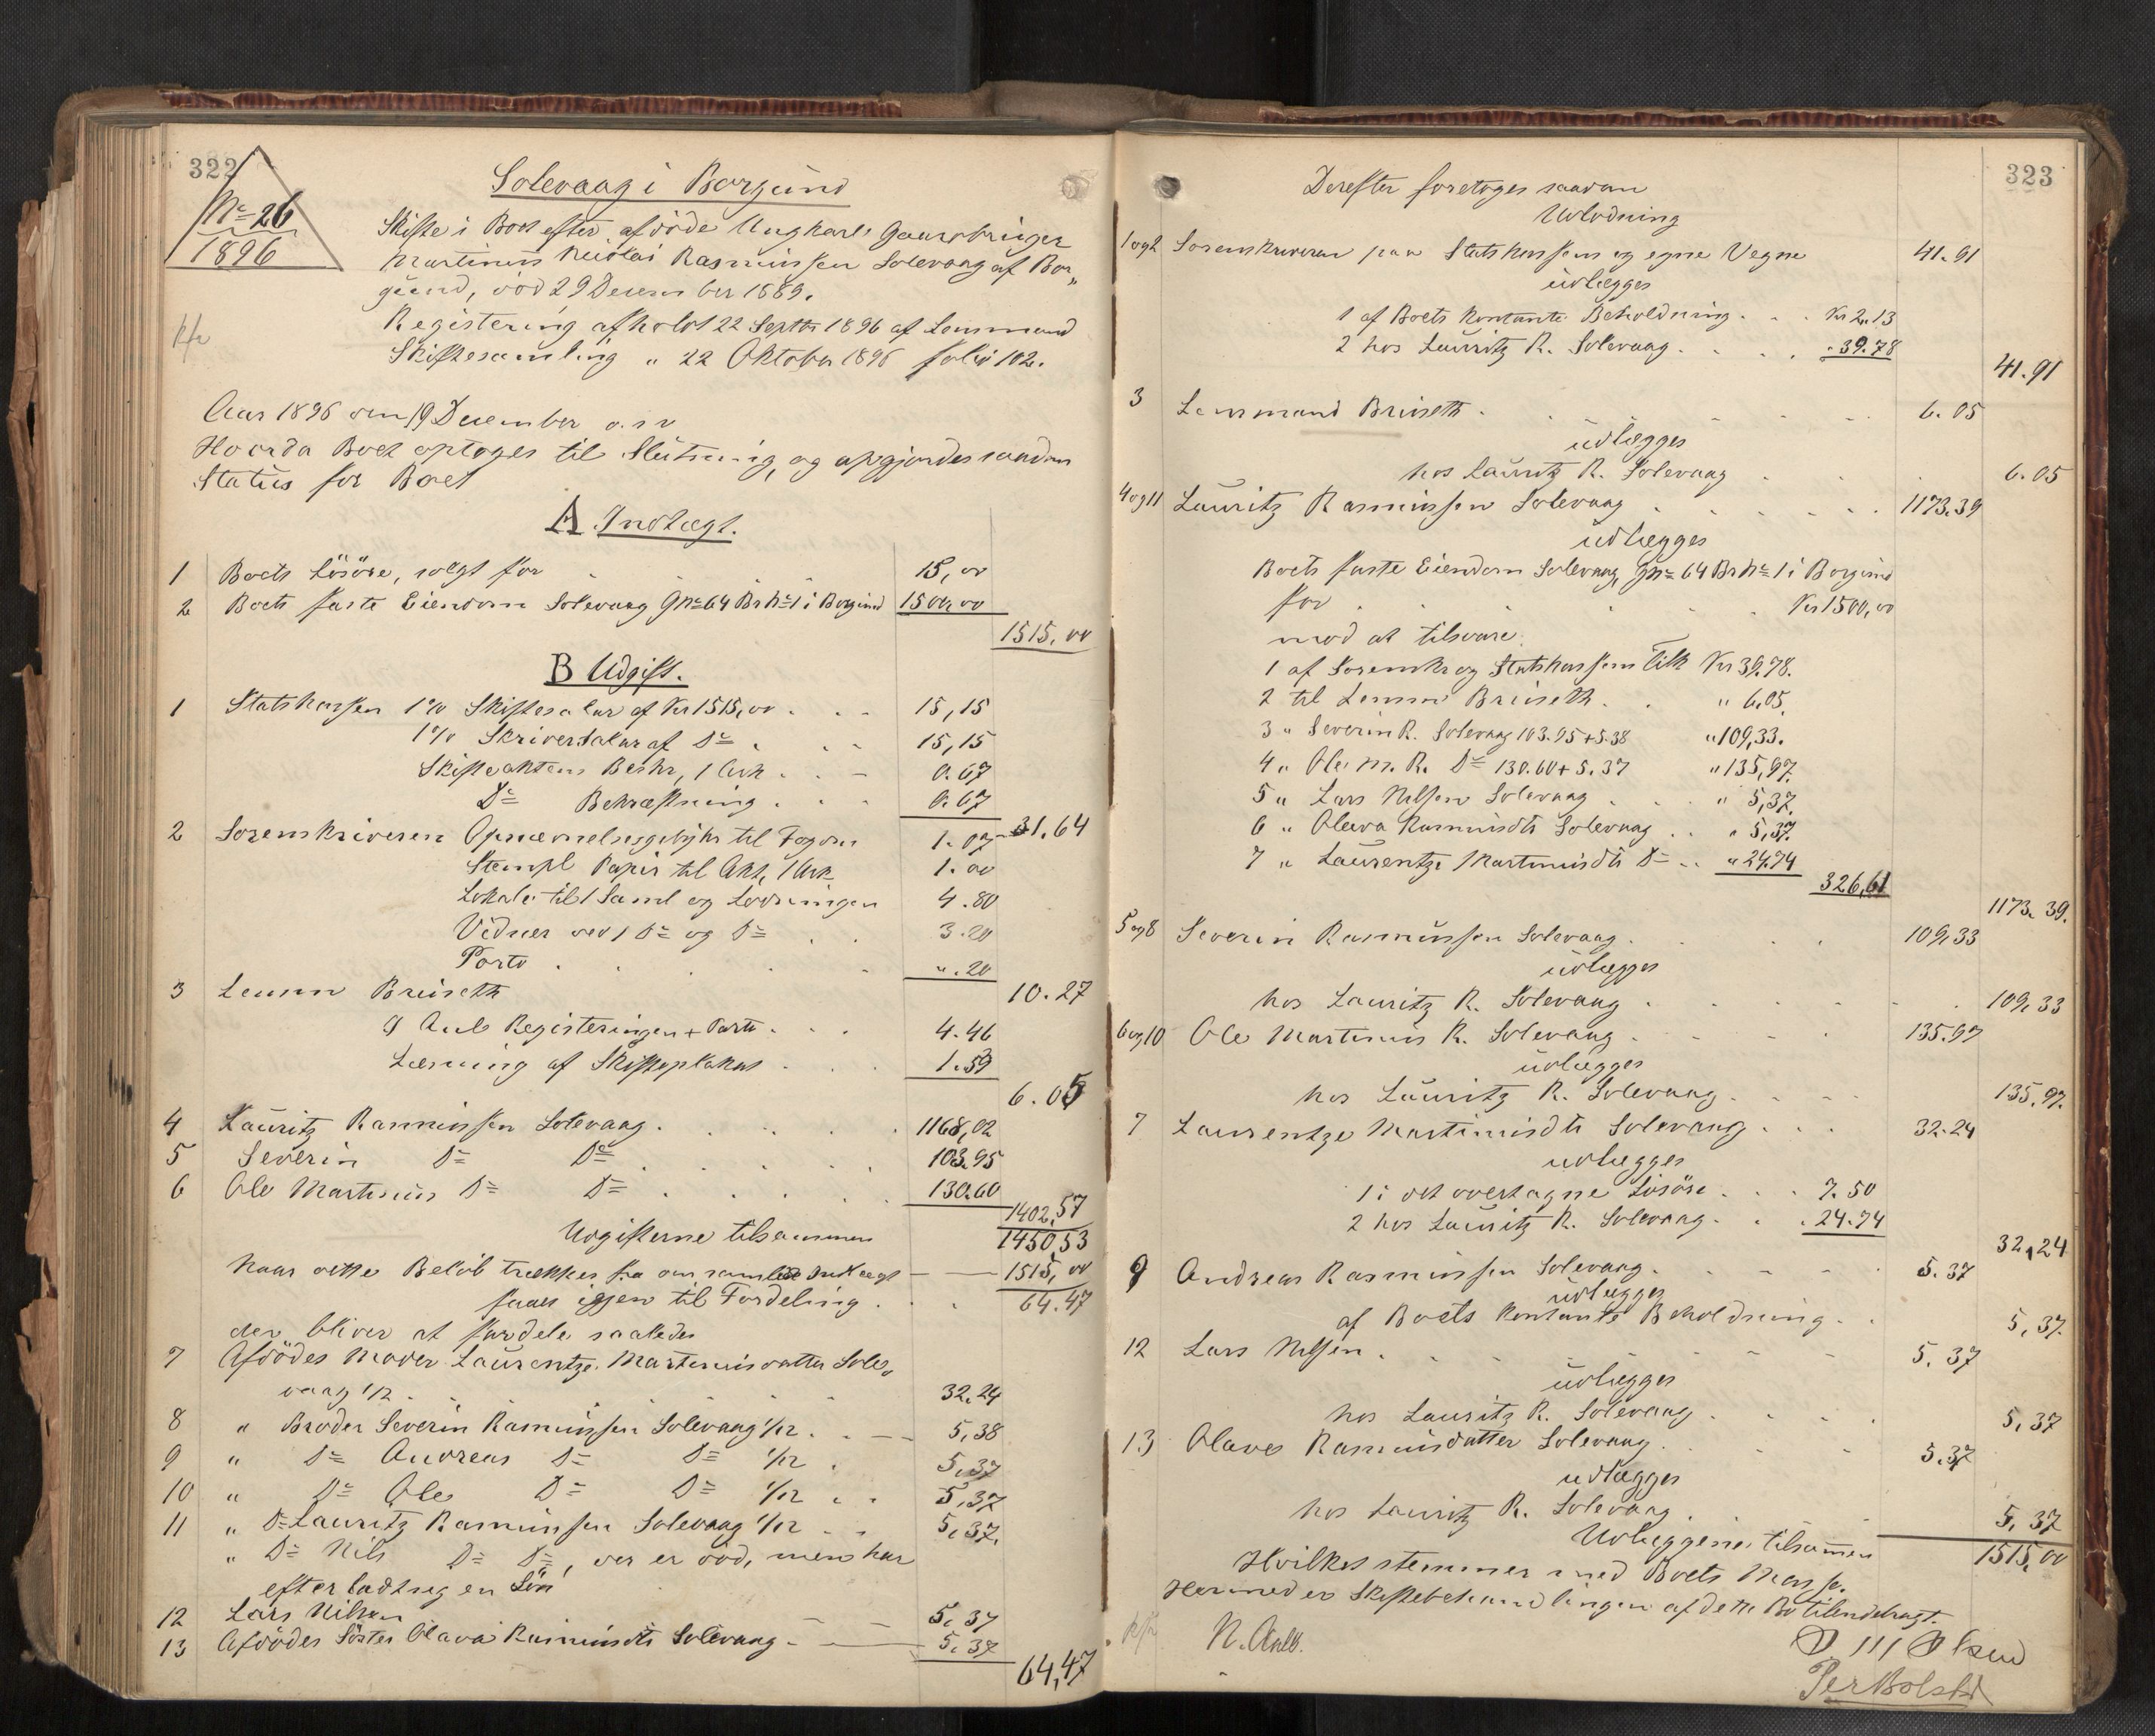 322
No 26
1896
Solevaag i Borgund
Skifte i Boet efter afdöde Ungkarl Gaardbruger
Martinus Nikolai Rasmussen Solevaag af Bor„
gund, död 29 December 1889.
Registering afholdt 22 Septbr 1896 af Lensmand
Skiftesamling " 22 Oktober 1896 folio 102.
Aar 1896 den 19 December o.s.v
Hvorda Boet optoges til Slutning, og opgjordes saadan
Status for Boet
A. Indtægt.
1 Boets Lösöre, solgt for 15,00
2 Boets faste Eiendom Solevaag Gno 64 Brno 1 i Borgund 1500,00
1515,00
B Udgift.
1 Statskassen 1% Skiftesalær af Kr 1515,00 15,15
1% Skriversalær af Do 15,15
Skifteaktens Beskr, 1 Ark 0.67
Do Bekræftning 0.67
31.64
2 Sorenskriveren Opnævnelsesgebyhr til Fogden 1.07
Stempl Papir til Akt, 1 Ark 1.00
Lokale til 1 Saml og Lodningen 4.80
Vidner ved 1 Do og Do 3.20
Porto ".20
10.27
3 Lensm Bruseth
I Anl Registeringen + Porto 4.46
Læsning af Skifteplakat 1.59
6.05
4 Lauritz Rasmussen Solevaag 1168,02
5 Severin Do Do 103.95
6 Ole Martinus Do Do 130.60
1402,57
Udgifterne tilsammen 1450,53
Naar dette Belöb trækkes fra den samlede Indtægt 1515,00
haves igjen til Fordeling 64.47
der bliver at fordele saaledes
7 Afdödes Moder Laurentze Martinusdatter Sole„
vaag 1/2 32.24
8 " Broder Severin Rasmussen Solevaag 1/12 5,38
9 " Do Andreas Do Do 1/12 5,37
10 " Do Ole Do Do 1/12 5,37
11 " Do Lauritz Rasmussen Solevaag 1/12 5,37.
" Do Nils Do Do, der er död, men har
efterladt sig en Sön
12 Lars Nilsen 5,37
13 Afdödes Söster Olava Rasmusdtr Solevaag 5,37
64,47
323
Derefter foretoges saadan
Udlodning
1 og 2 Sorenskriveren paa Statskassens og egne Vegne 41.91
udlægges
1 af Boets kontante Beholdning Kr 2.13
2 hos Lauritz R. Solevaag " 39.78
41.91
3 Lensmand Bruseth 6.05
udlægges
hos Lauritz R. Solevaag 6.05
4 og 11 Lauritz Rasmussen Solevaag 1173.39
udlægges
Boets faste Eiendom Solevaag, Gno 64 Brno 1 i Borgund
for Kr 1500,00
mod at tilsvare:
1 af Sorenskr og Statskassens Tilk Kr 39.78.
2 til Lensm Bruseth " 6.05.
3 " Severin R. Solevaag 103.95 + 5.38 " 109,33.
4 " Ole M. R. Do 130.60 + 5.37 " 135,97.
5 " Lars Nilsen Solevaag " 5,37.
6 " Olava Rasmusdtr Solevaag " 5,37.
7 " Laurentze Martinusdtr Do " 24.74
326,61
1173.39.
5 og 8 Severin Rasmussen Solevaag 109.33
udlægges
hos Lauritz R. Solevaag 109.33
6 og 10 Ole Martinus R. Solevaag 135.97
udlægges
hos Lauritz R. Solevaag 135,97.
7 Laurentze Martinusdtr Solevaag 32.24
udlægges
1 i det overtagne Lösöre 7.50
2 hos Lauritz R. Solevaag 24.74
32,24
9 Andreas Rasmussen Solevaag 5.37
udlægges
af Boets kontante Beholdning 5,37.
12 Lars Nilsen 5.37
udlægges
hos Lauritz R. Solevaag 5,37
13 Olava Rasmusdatter Solevaag 5.37
udlægges
hos Lauritz R. Solevaag 5,37
Udlæggene tilsammen 1515,00
Hvilket stemmer med Boets Masse.
Hermed er Skiftebehandlingen af dette Bo tilendebragt.
N. Aall.
O M Olsen
Per Bolstd